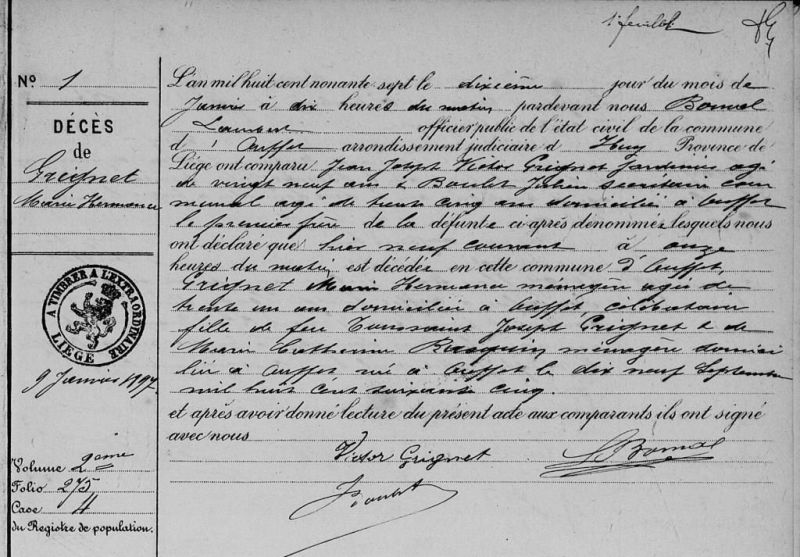 1er feuillet
N° 1
DÉCÈS
de
Grignet
Marie Hermance
A TIMBRER A L'EXTRAORDINAIRE
LIÈGE
9 Janvier 1897
Volume 2ème
Folio 275
Case 4
du Registre de population.
L'an mil huit cent nonante sept le dixième jour du mois de
Janvier à dix heures du matin pardevant nous Bomal
Laurent officier public de l'état civil de la commune
d'Ouffet arrondissement judiciaire d Huy Province de
Liége ont comparu Jean Joseph Victor Grignet Jardinier agé
de vingt neuf ans & Boulet Julien secrétaire com
munal agé de trente cinq ans domiciliés à Ouffet
le premier frère de la défunte ci-après dénommée lesquels nous
ont déclaré que hier neuf courant à onze
heures du matin est décédée en cette commune d'Ouffet,
Grignet Marie Hermance ménagère agée de
trente un ans domiciliée à Ouffet, célibataire
fille de feu Toussaint Joseph Grignet & de
Marie Catherine Rasquin ménagère domici
liée à Ouffet née à Ouffet le dix neuf Septembre
mil huit cent soixante cinq.
et après avoir donné lecture du présent acte aux comparants ils ont signé
avec nous
Victor Grignet
L Bomal
J Boulet